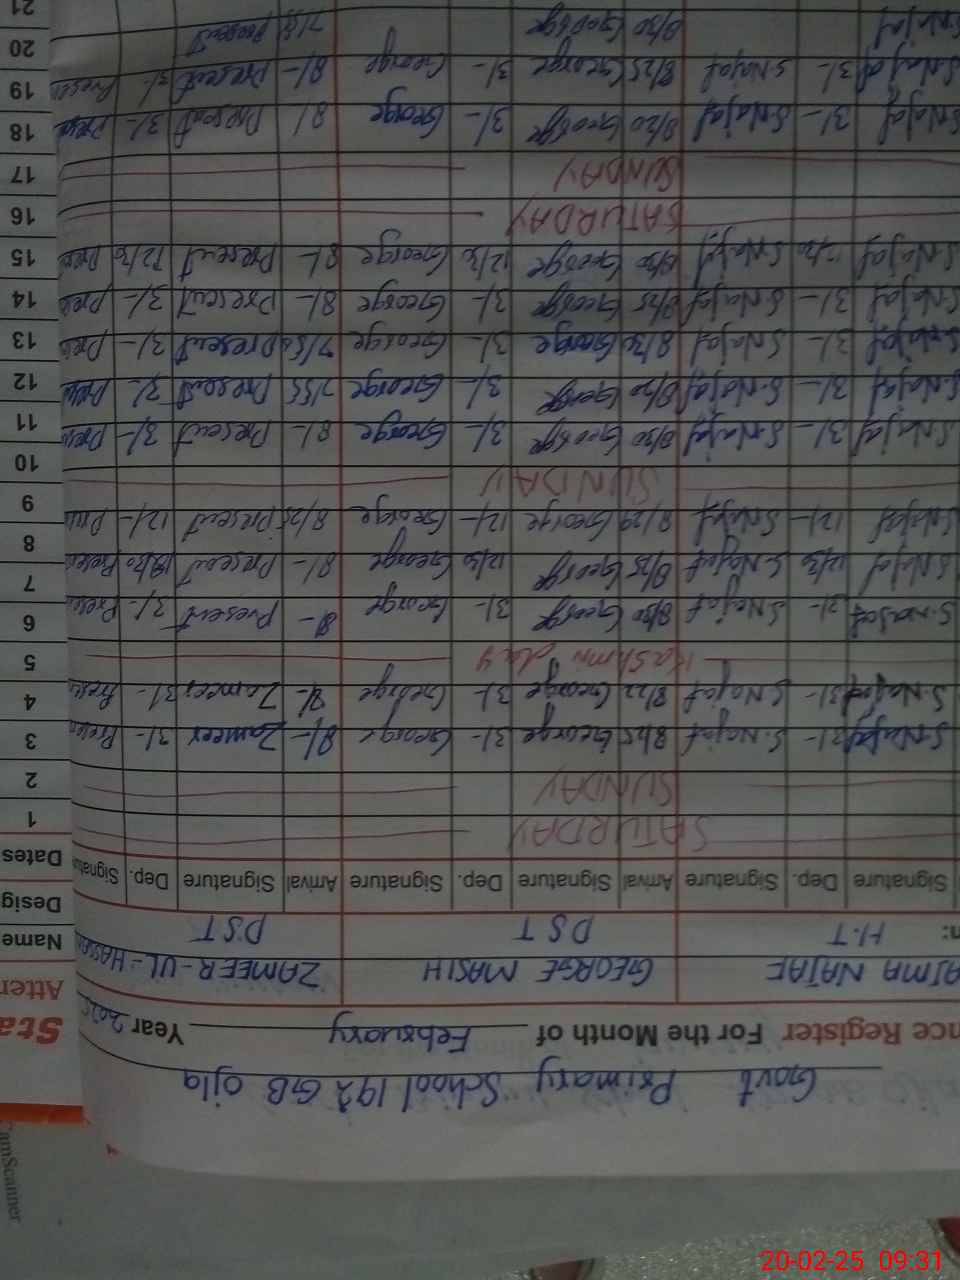 20-02-25 09:31
CamScanner
Govt Primary School 192 GB ojla
nce Register For the Month of February Year 2025 Sta
Atter
NAJAF GEORGE MASIH ZAMEER-UL-HASSAN Name
n: H.T PST PST Desig
Signature Dep. Signature Arrival Signature Dep. Signature Arrival Signature Dep. Signature Dates
SATURDAY 1
SUNDAY 2
S.Najaf 3/- S.Najaf 8/25 George 3/- George 8/- Zameer 3/- Presen 3
S.Najaf 3/- S.Najaf 8/22 George 3/- George 8/- Zameer 3/- Prese 4
Kashmir day 5
S.Najaf 3/- S.Najaf 8/30 George 3/- George 8- Present 3/- Prese 6
S.Najaf 12/30 S.Najaf 8/25 George 12/30 George 8/- Present 12/30 Presen 7
S.Najaf 12/- S.Najaf 8/29 George 12/- George 8/25 Present 12/- Pres 8
SUNDAY 9
10
S.Najaf 3/- S.Najaf 8/30 George 3/- George 8/- Present 3/- Pres 11
S.Najaf 3/- S.Najaf 8/20 George 3/- George 7/55 Present 3/- Pres 12
S.Najaf 3/- S.Najaf 8/30 George 3/- George 7/50 Present 3/- Pres 13
S.Najaf 3/- S.Najaf 8/25 George 3/- George 8/- Present 3/- Pres 14
S.Najaf 12/30 S.Najaf 8/30 George 12/30 George 8/- Present 12/30 Pres 15
SATURDAY 16
SUNDAY 17
S.Najaf 3/- S.Najaf 8/20 George 3/- George 8/ Present 3/- Prese 18
S.Najaf 3/- S.Najaf 8/25 George 3/- George 8/- Present 3/- Presen 19
S.Najaf 8/30 George Present 20
21